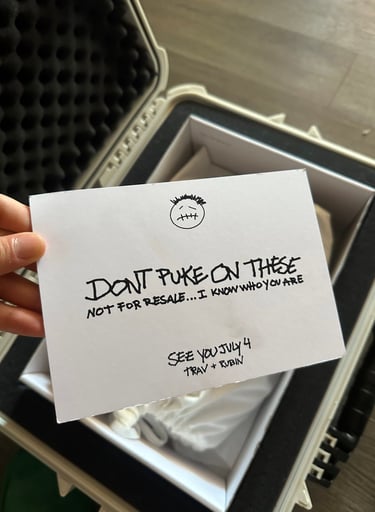 DONT PUKE ON THESE
NOT FOR RESALE...I KNOW WHO YOU ARE
SEE YOU JULY 4
TRAV + RUBIN